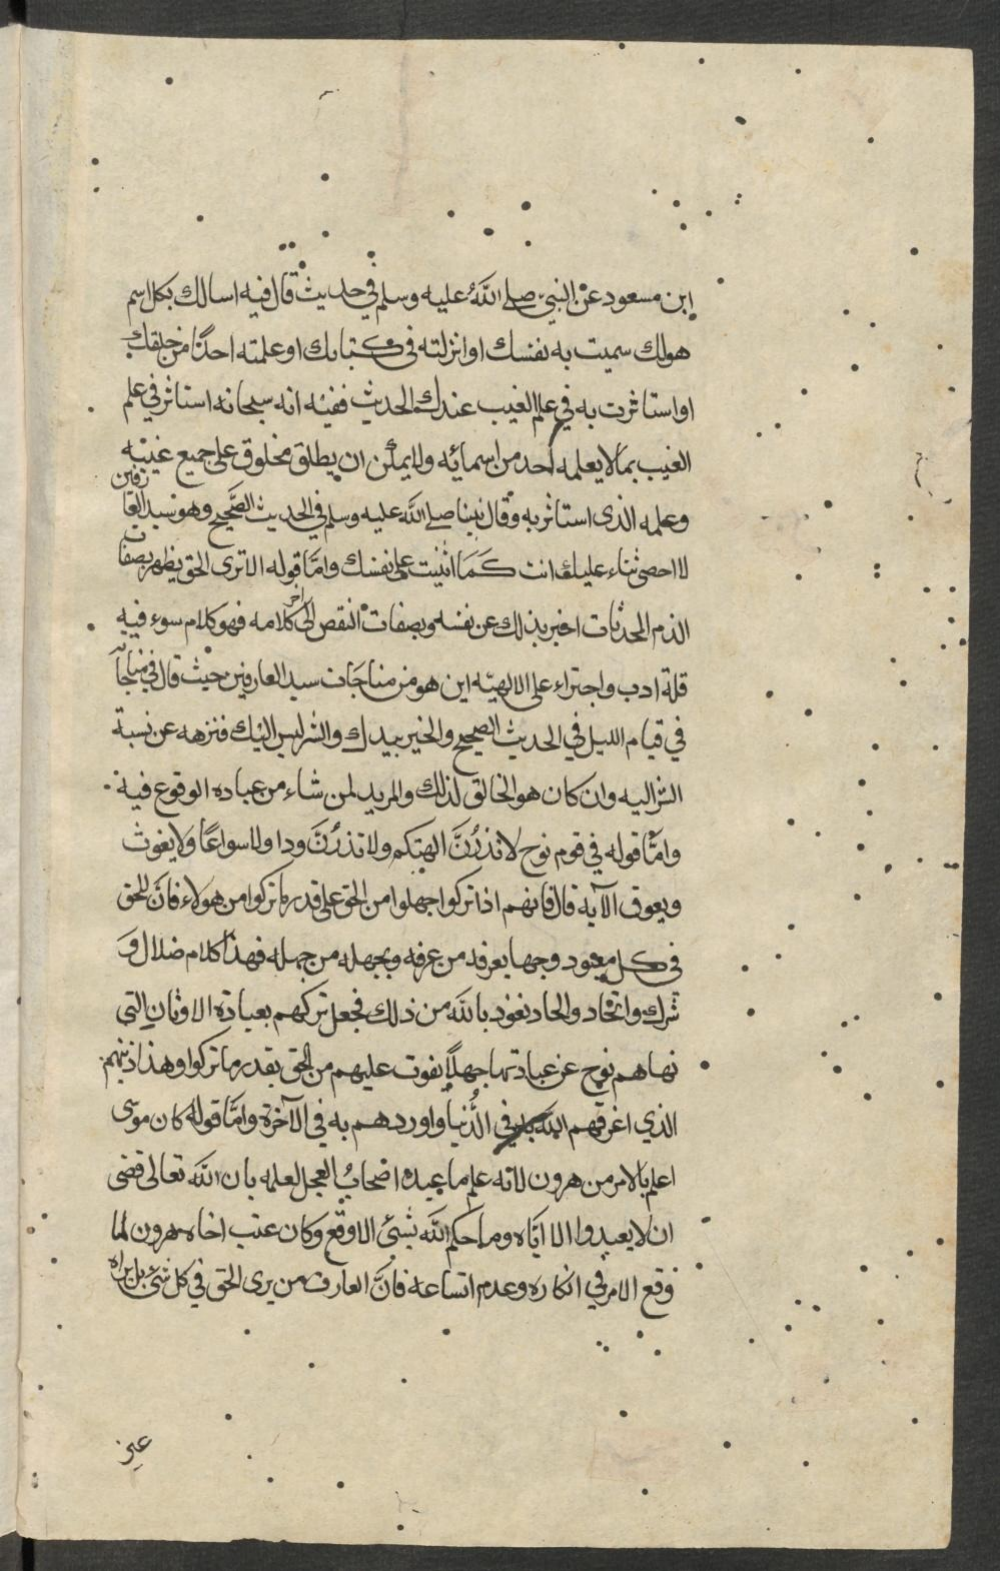 ابن مسعود عن النبي صلى الله عليه وسلم في حديث قال فيه اسالك بكل اسم
هو لك سميت به نفسك او انزلته في كتابك او علمته احدًا من خلقك
او استاثرت به في علم الغيب عندك الحديث ففيه انه سبحانه استاثر في علم
الغيب بما لا يعلمه احد من اسمائه ولا يمكن ان يطلق مخلوق على جميع غيبه
وعلمه الذى استاثر به وقال نبينا صلى الله عليه وسلم في الحديث الصَّحيح وهو سيد العارفين
لا احصى ثناء عليك انت كَمَا اثنيت على نفسك وامَّا قوله الا ترى الحق يظهر بصفات
الذم المحدثات اخبر بذلك عن نفسه وبصفات النقص الى اخر كلامه فهو كلام سوء فيه
قلة ادب واجتراء على الالهيه اين هو من مناجَات سيد العارفين حيث قال في مناجاته
في قيام الليل في الحديث الصحيح والخير بيدك والشر ليس اليك فنزهه عن نسبة
الشر اليه وان كان هو الخالق لذلك والمريد لمن شاء من عباده الوقوع فيه
وامَّا قوله في قوم نوح لا تذرُنَّ الهتكم ولا تذرُنَّ ودا ولا سواعًا ولا يغوث
ويعوق الآية قال فانهم اذا تركوا جهلوا من الحق على قدر ما تركوا من هولاء فانَّ للحق
في كل معبود وجها يعرفه من عرفه ويجهله من جهله فهذا كلام ضلال وَ
شرك واتحاد والحاد نعوذ بالله من ذلك فجعل تركهم بعبادة الاوثان التي
نهاهم نوح عن عبادتها جهلًا يفوت عليهم من الحق بقدر ما تركوا وهذا ذنبهم
الذي اغرقهم الله في الدُّنيا واوردهم به في الآخرة وامَّا قوله كان موسى
اعلم بالامر من هرون لانه علم ما عبده اصحابُ العجل لعلمه بان الله تعالى قضى
ان لا يعبدوا الا ايَّاه وما حكم الله بشئ الا وقع وكان عتب اخاه هرون لما
وقع الامر في انكاره وعدم اتساعه فانَّ العارف من يرى الحق في كل شئ بل يراه
عين